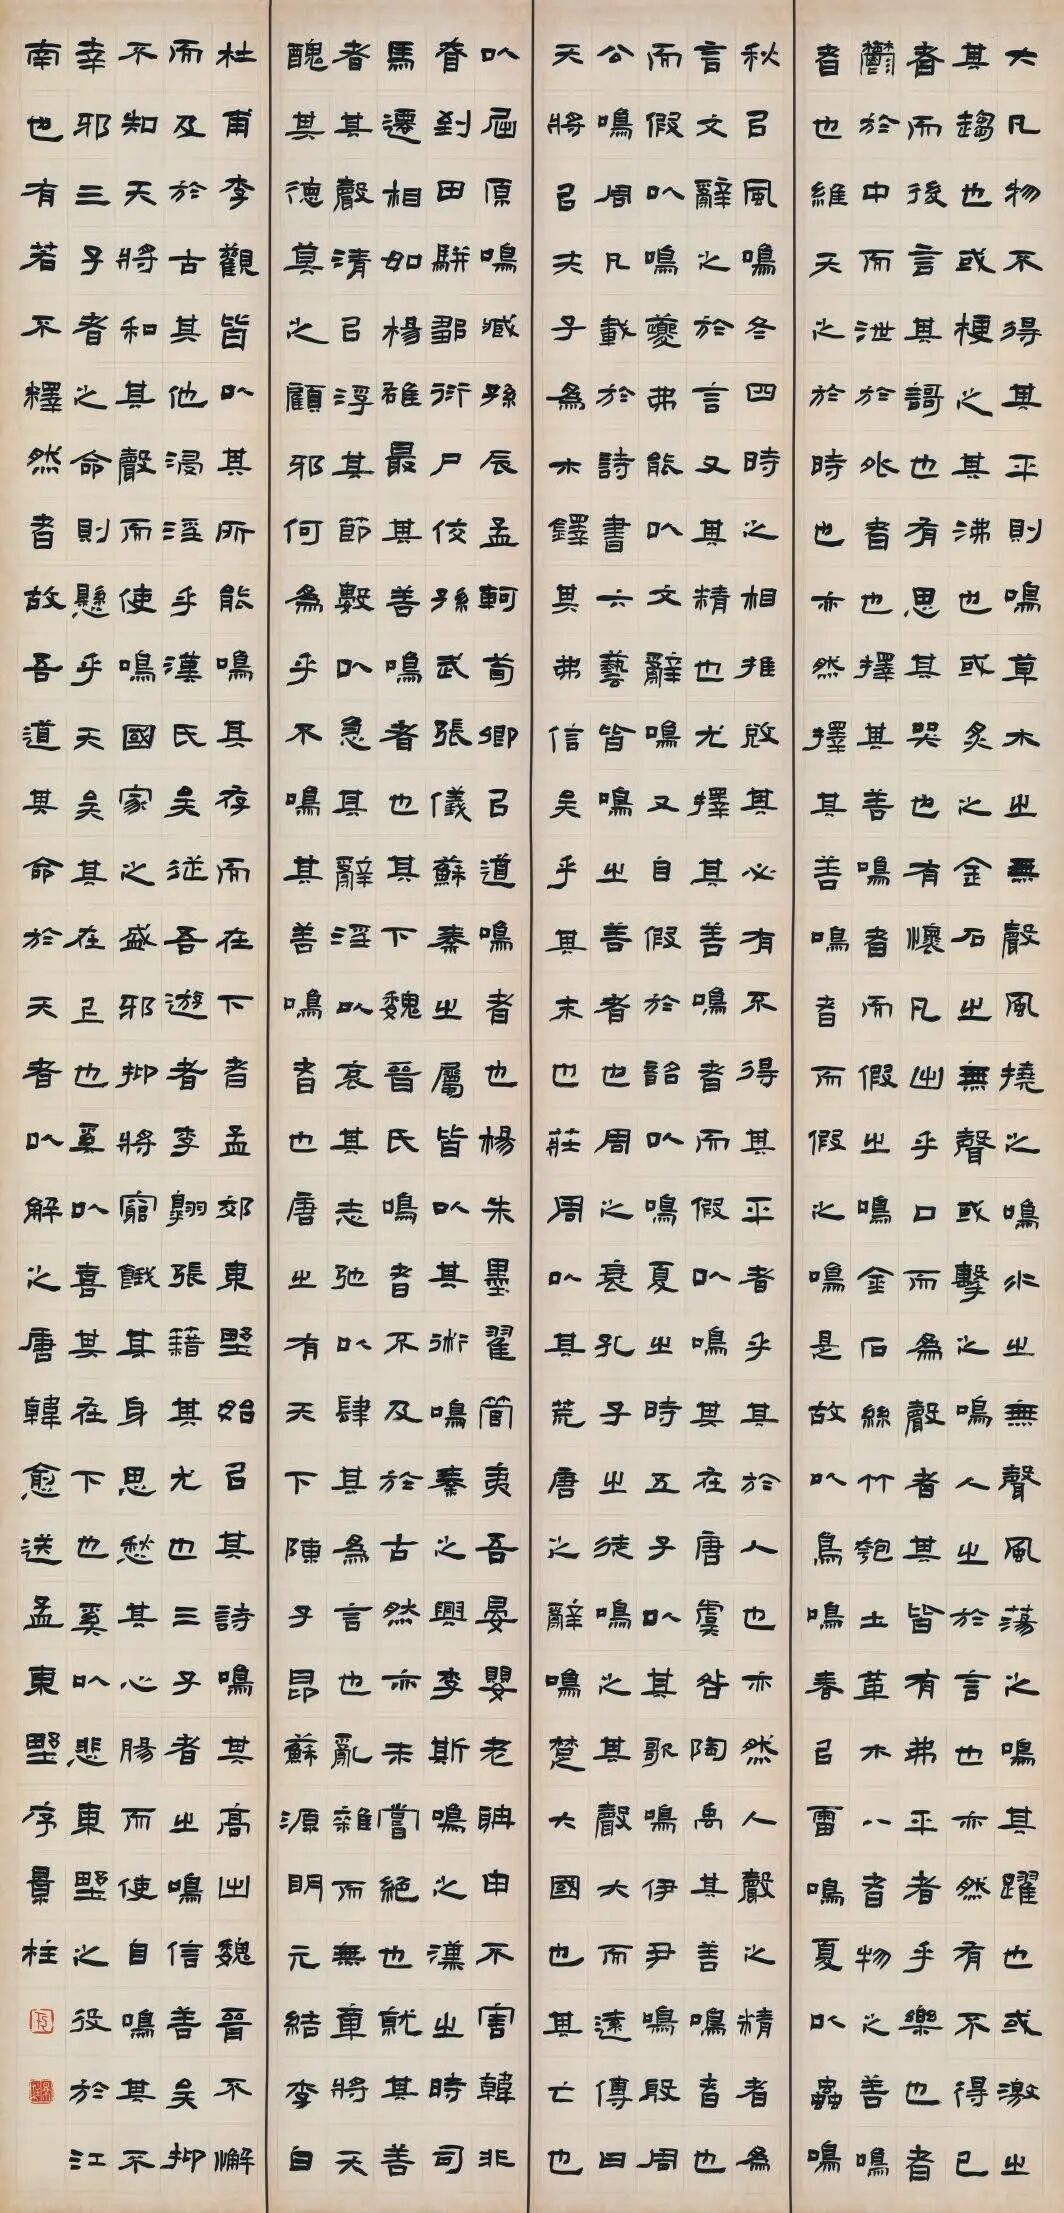 大凡物不得其平則鳴草木之無聲風撓之鳴水之無聲風蕩之鳴其躍也或激之
其趨也或梗之其沸也或炙之金石之無聲或擊之鳴人之於言也亦然有不得已
者而後言其謌也有思其哭也有懷凡出乎口而為聲者其皆有弗平者乎樂也者
鬱於中而泄於外者也擇其善鳴者而假之鳴金石絲竹匏土革木八者物之善鳴
者也維天之於時也亦然擇其善鳴者而假之鳴是故以鳥鳴春以雷鳴夏以蟲鳴
秋以風鳴冬四時之相推敚其必有不得其平者乎其於人也亦然人聲之精者為
言文辭之於言又其精也尤擇其善鳴者而假以鳴其在唐虞咎陶禹其善鳴者也
而假以鳴夔弗能以文辭鳴又自假於韶以鳴夏之時五子以其歌鳴伊尹鳴殷周
公鳴周凡載於詩書六藝皆鳴之善者也周之衰孔子之徒鳴之其聲大而遠傳曰
天將以夫子為木鐸其弗信矣乎其末也莊周以其荒唐之辭鳴楚大國也其亡也
以屈原鳴臧孫辰孟軻荀卿以道鳴者也楊朱墨翟管夷吾晏嬰老聃申不害韓非
眘到田駢鄒衍尸佼孫武張儀蘇秦之屬皆以其術鳴秦之興李斯鳴之漢之時司
馬遷相如楊雄最其善鳴者也其下魏晉氏鳴者不及於古然亦未嘗絕也就其善
者其聲清以浮其節數以急其辭淫以哀其志弛以肆其為言也亂雜而無章將天
醜其德莫之顧邪何為乎不鳴其善鳴者也唐之有天下陳子昂蘇源明元結李白
杜甫李觀皆以其所能鳴其存而在下者孟郊東野始以其詩鳴其高出魏晉不懈
而及於古其他浸淫乎漢氏矣從吾遊者李翱張籍其尤也三子者之鳴信善矣抑
不知天將和其聲而使鳴國家之盛邪抑將窮餓其身思愁其心腸而使自鳴其不
幸邪三子者之命則懸乎天矣其在上也奚以喜其在下也奚以悲東野之役於江
南也有若不釋然者故吾道其命於天者以解之唐韓愈送孟東野序景柱